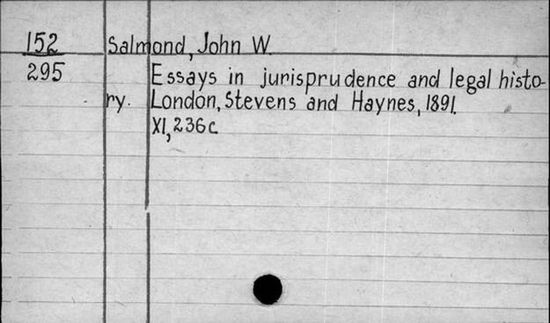 152 Salmond, John W.
295 Essays in jurisprudence and legal histo-
ry. London, Stevens and Haynes, 1891.
XI, 236c.